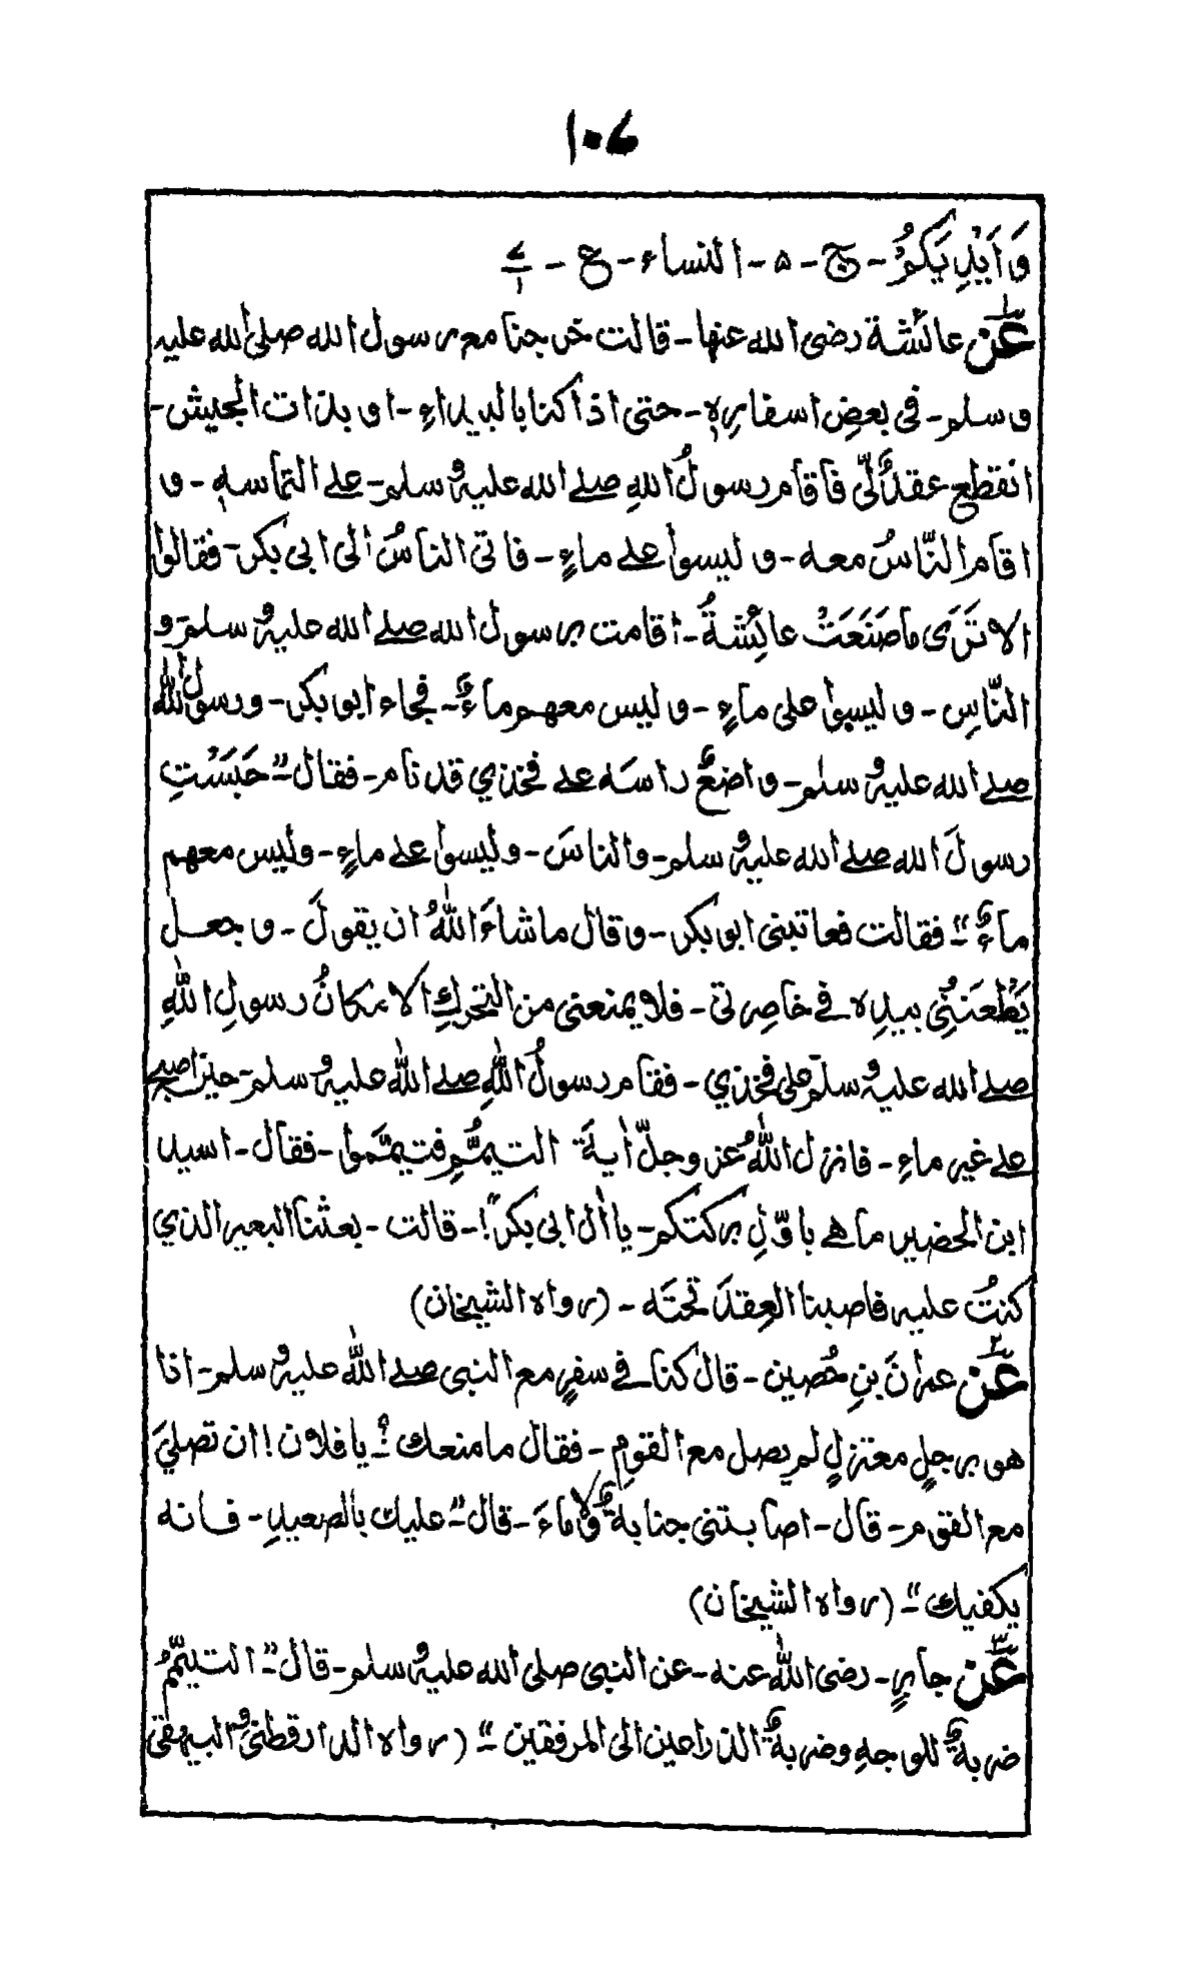 ۱۰۶
وَاَيْدِيَكُمْ - ج - ۵ - النساء - ع - ۷/۱
عَن عائشة رضى الله عنها - قالت خرجنا مع رسول الله صلى الله عليه
وسلم - فى بعضِ اسفارِهٖ - حتى اذا كنا بالبيداءِ - او بذات الجيش -
انقطع عقدٌ لِّى فاقام رسولُ اللهِ صلے الله عليه و سلم - علے التماسهٖ - و
اقام النّاسُ معه - و ليسوا علے ماءٍ - فاتى الناسُ الى ابى بكر - فقالوا
الا تَرَى ما صَنَعَتْ عائِشةُ - اقامت برسول الله صلے الله عليه و سلم - و
النّاسِ - و ليسوا على ماءٍ - و ليس معهم ماءٌ - فجاء ابو بكر - و رسولُ الله
صلے الله عليه و سلم - واضعٌ راسَه علے فخذي قد نام - فقال "حَبَسْتِ
رسولَ الله صلے الله عليه و سلم - والناسَ - وليسوا علے ماءٍ - وليس معهم
ماءٌ" فقالت فعاتبنى ابو بكر - وقال ما شاءَ اللهُ ان يقولَ - و جعل
يَطْعَنُنِى بيدِه فے خاصِرتى - فلا يمنعنى من التحركِ الا مكانُ رسولِ اللهِ
صلے الله عليه و سلم على فخذي - فقام رسولُ اللهِ صلے الله عليه و سلم - حين اصبح
علے غير ماءِ - فانزل اللهُ عز وجلّ اٰيةَ التيمُّمِ فتيمَّموا - فقال - اسيد
ابن الحضير ما هے باوّلِ بركتكم - يا اٰل ابى بكر"! - قالت - بعثنا البعير الذي
كنتُ عليه فاصبنا العِقدَ تحتَه - (رواه الشيخان)
عَن عمرانَ بنِ حُصين - قال كنا فے سفرٍ مع النبى صلے الله عليه و سلم - اذا
هو برجلٍ معتزلٍ لم يصل مع القومِ - فقال ما منعك ؟ - يا فلان ! ان تصلىَ
مع القوم - قال - اصابتنى جنابةٌ ولا ماءَ - قال "عليك بالصعيدِ - فانه
يكفيك" (رواه الشيخان)
عَن جابرٍ - رضى الله عنه - عن النبى صلى الله عليه و سلم - قال "التيمّمُ
ضربةٌ للوجهِ وضربةٌ الذراعين الى المرفقين" (رواه الدارقطنى و البيهقى